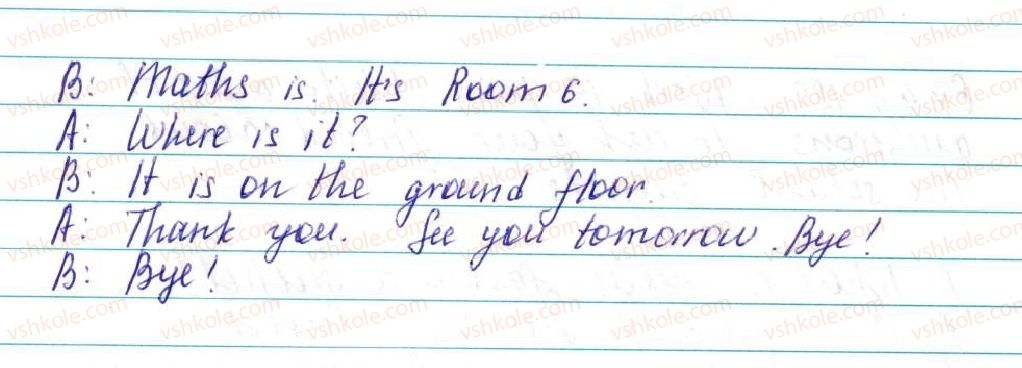 B: Maths is. It's Room 6.
A: Where is it?
B: It is on the ground floor.
A: Thank you. See you tomorrow. Bye!
B: Bye!